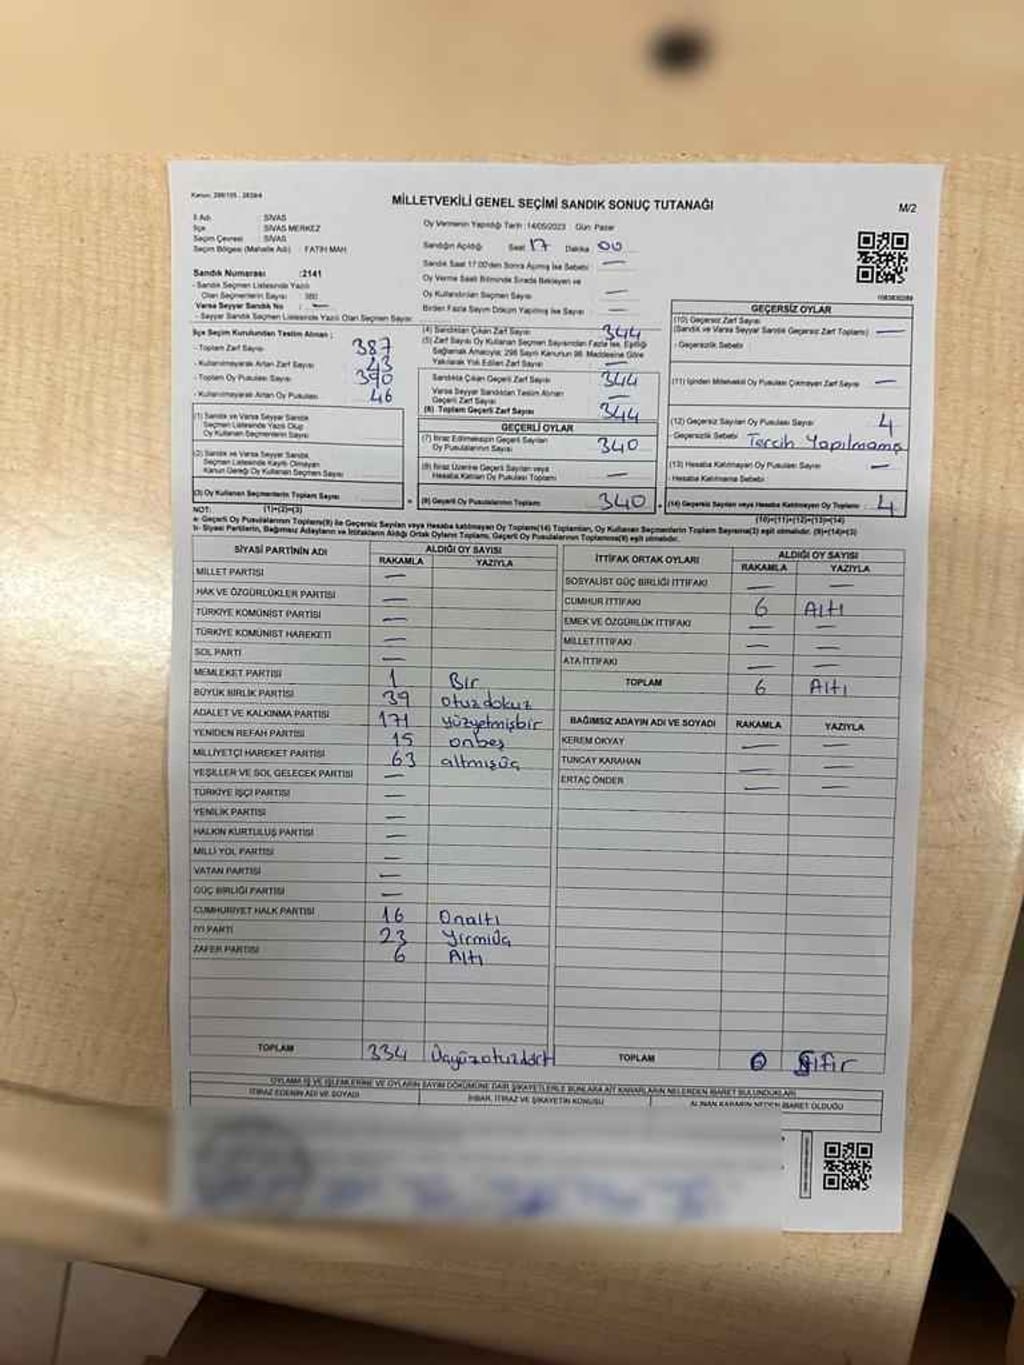 MİLLETVEKİLİ GENEL SEÇİMİ SANDIK SONUÇ TUTANAĞI
M/2
İl Adı : SİVAS
İlçe : SİVAS MERKEZ
Seçim Çevresi : SİVAS
Seçim Bölgesi (Mahalle Adı) : FATİH MAH
Sandık Numarası : 2141
- Sandık Seçmen Listesinde Yazılı
Olan Seçmenlerin Sayısı : 380
Varsa Seyyar Sandık No : —
- Seyyar Sandık Listesinde Yazılı Olan Seçmen Sayısı
Oy Vermenin Yapıldığı Tarih : 14/05/2023 Gün Pazar
Sandığın Açıldığı Saat 17 Dakika 00
Sandık Saat 17.00'den Sonra Açılmış İse Sebebi —
Oy Verme Saati Bitiminde Sırada Bekleyen ve
Oy Kullandırılan Seçmen Sayısı —
Birden Fazla Sayım Döküm Yapılmış İse Sayısı —
İlçe Seçim Kurulundan Teslim Alınan ;
- Toplam Zarf Sayısı 387
- Kullanılmayarak Artan Zarf Sayısı 43
- Toplam Oy Pusulası Sayısı 390
- Kullanılmayarak Artan Oy Pusulası 46
(1) Sandık ve Varsa Seyyar Sandık
Seçmen Listesinde Yazılı Olup
Oy Kullanan Seçmenlerin Sayısı
(2) Sandık ve Varsa Seyyar Sandık
Seçmen Listesinde Kayıtlı Olmayan
Kanun Gereği Oy Kullanan Seçmen Sayısı
(3) Oy Kullanan Seçmenlerin Toplam Sayısı
(4) Sandıktan Çıkan Zarf Sayısı 344
(5) Zarf Sayısı Oy Kullanan Seçmen Sayısından Fazla İse, Eşitliği
Sağlamak Amacıyla; 298 Sayılı Kanunun 98. Maddesine Göre
Yakılarak Yok Edilen Zarf Sayısı —
Sandıkta Çıkan Geçerli Zarf Sayısı 344
Varsa Seyyar Sandıktan Teslim Alınan
Geçerli Zarf Sayısı —
(6) Toplam Geçerli Zarf Sayısı 344
GEÇERLİ OYLAR
(7) İtiraz Edilmeksizin Geçerli Sayılan
Oy Pusulalarının Sayısı 340
(8) İtiraz Üzerine Geçerli Sayılan veya
Hesaba Katılan Oy Pusulası Toplamı —
(9) Geçerli Oy Pusulalarının Toplamı 340
GEÇERSİZ OYLAR
(10) Geçersiz Zarf Sayısı
(Sandık ve Varsa Seyyar Sandık Geçersiz Zarf Toplamı) —
- Geçersizlik Sebebi
(11) İçinden Milletvekili Oy Pusulası Çıkmayan Zarf Sayısı —
(12) Geçersiz Sayılan Oy Pusulası Sayısı 4
- Geçersizlik Sebebi Tercih Yapılmamış
(13) Hesaba Katılmayan Oy Pusulası Sayısı —
- Hesaba Katılmama Sebebi
(14) Geçersiz Sayılan veya Hesaba Katılmayan Oy Toplamı 4
NOT: (1)+(2)=(3)
(10)+(11)+(12)+(13)=(14)
a- Geçerli Oy Pusulalarının Toplamı(9) ile Geçersiz Sayılan veya Hesaba katılmayan Oy Toplamı(14) Toplamları, Oy Kullanan Seçmenlerin Toplam Sayısına(3) eşit olmalıdır. (9)+(14)=(3)
b- Siyasi Partilerin, Bağımsız Adayların ve İttifakların Aldığı Ortak Oyların Toplamı, Geçerli Oy Pusulalarının Toplamına(9) eşit olmalıdır.
SİYASİ PARTİNİN ADI ALDIĞI OY SAYISI
RAKAMLA YAZIYLA
MİLLET PARTİSİ —
HAK VE ÖZGÜRLÜKLER PARTİSİ —
TÜRKİYE KOMÜNİST PARTİSİ —
TÜRKİYE KOMÜNİST HAREKETİ —
SOL PARTİ —
MEMLEKET PARTİSİ 1 Bir
BÜYÜK BİRLİK PARTİSİ 39 otuzdokuz
ADALET VE KALKINMA PARTİSİ 171 yüzyetmişbir
YENİDEN REFAH PARTİSİ 15 onbeş
MİLLİYETÇİ HAREKET PARTİSİ 63 altmışüç
YEŞİLLER VE SOL GELECEK PARTİSİ —
TÜRKİYE İŞÇİ PARTİSİ —
YENİLİK PARTİSİ —
HALKIN KURTULUŞ PARTİSİ —
MİLLİ YOL PARTİSİ —
VATAN PARTİSİ —
GÜÇ BİRLİĞİ PARTİSİ —
CUMHURİYET HALK PARTİSİ 16 Onaltı
İYİ PARTİ 23 Yirmiüç
ZAFER PARTİSİ 6 Altı
TOPLAM 334 Üçyüzotuzdört
İTTİFAK ORTAK OYLARI ALDIĞI OY SAYISI
RAKAMLA YAZIYLA
SOSYALİST GÜÇ BİRLİĞİ İTTİFAKI — —
CUMHUR İTTİFAKI 6 Altı
EMEK VE ÖZGÜRLÜK İTTİFAKI — —
MİLLET İTTİFAKI — —
ATA İTTİFAKI — —
TOPLAM 6 Altı
BAĞIMSIZ ADAYIN ADI VE SOYADI RAKAMLA YAZIYLA
KEREM OKYAY — —
TUNCAY KARAHAN — —
ERTAÇ ÖNDER — —
TOPLAM 0 Sıfır
OYLAMA İŞ VE İŞLEMLERİNE VE OYLARIN SAYIM DÖKÜMÜNE DAİR ŞİKAYETLERLE BUNLARA AİT KARARLARIN NELERDEN İBARET BULUNDUKLARI
İTİRAZ EDENİN ADI VE SOYADI İHBAR, İTİRAZ VE ŞİKAYETİN KONUSU ALINAN KARARIN NEDEN İBARET OLDUĞU